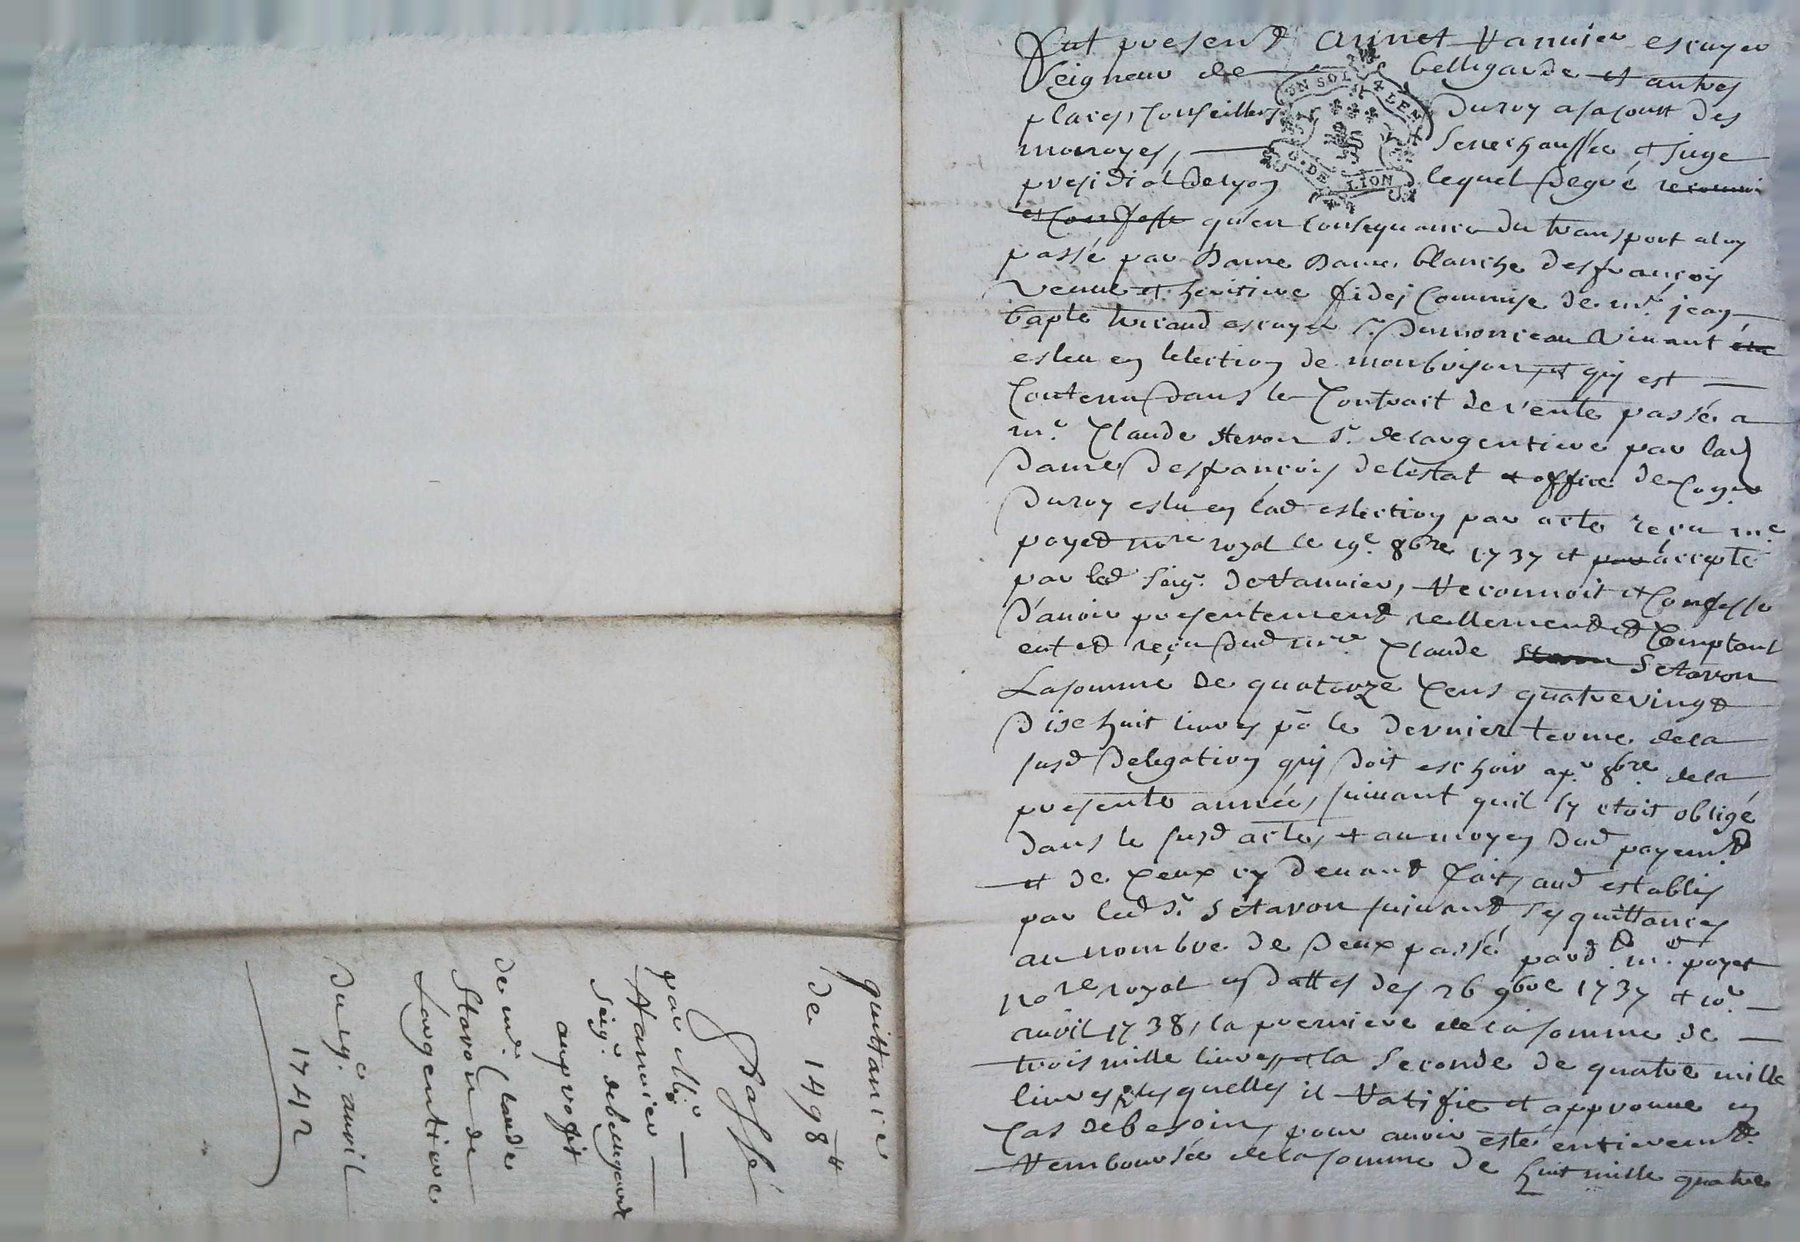 Fut present annet Vannier escuyer
Seigneur de bellegarde et autres
places, Conseiller Duroy asa Court des
monoyes, Senechaussée et Siege
presidial Delyon lequel Degré reconnoi
et Confesse qu'en Consequance du transport aluy
passé par Dame Dame blanche Desfrançois
Veuve et heritiere fidei Commise de mr. jean
bapte escuyer Sr. Dumonceau Vivant
esleu en lelection de montbrison, et qui est
Contenu Dans le Contract de vente passé a
mr. Claude Sr. delargentiere par lad
Dame Desfrançois delestat et office de Coner
Duroy eslu en lad eslection par acte reçu me
poyet nore royal le 19e. 8bre 1737 et par accepté
par led Seigr. De Vannier, Reconnoit et Confesse
D'avoir presentement reellement et Comptant
eut et reçu Dud mre Claude Staron
La somme de quatorze Cens quatrevingt
Dise huit livres po le dernier terme dela
susd Delegation qui Doit eschoir 8bre dela
presente année, suivant quil sy etoit obligé
dans le susd acte, et au moyen Dud payemt
et de Ceux cy devant fait, aud establis
par led Sr. Staron suivant ses quittances
au nombre de Deux passé pard.t me. poyet
nore royal en Dattes des 26 9bre 1737 et 10e.
avril 1738, la premiere de la somme de
trois mille livres et la Seconde de quatre mille
livres, lesquelles il Ratifie et approuve en
Cas de besoin, pour avoir esté entieremt.
Remboursée de la somme de huit mille quatre
quittance
de 1498tt
Passé
par Mr
Vannier
Seigr. de bellegarde
au profit
de mr. Claude
Staron de
Largentiere
Du 9e. avril
1742
UN SOL 4 DEN
G. DE LION